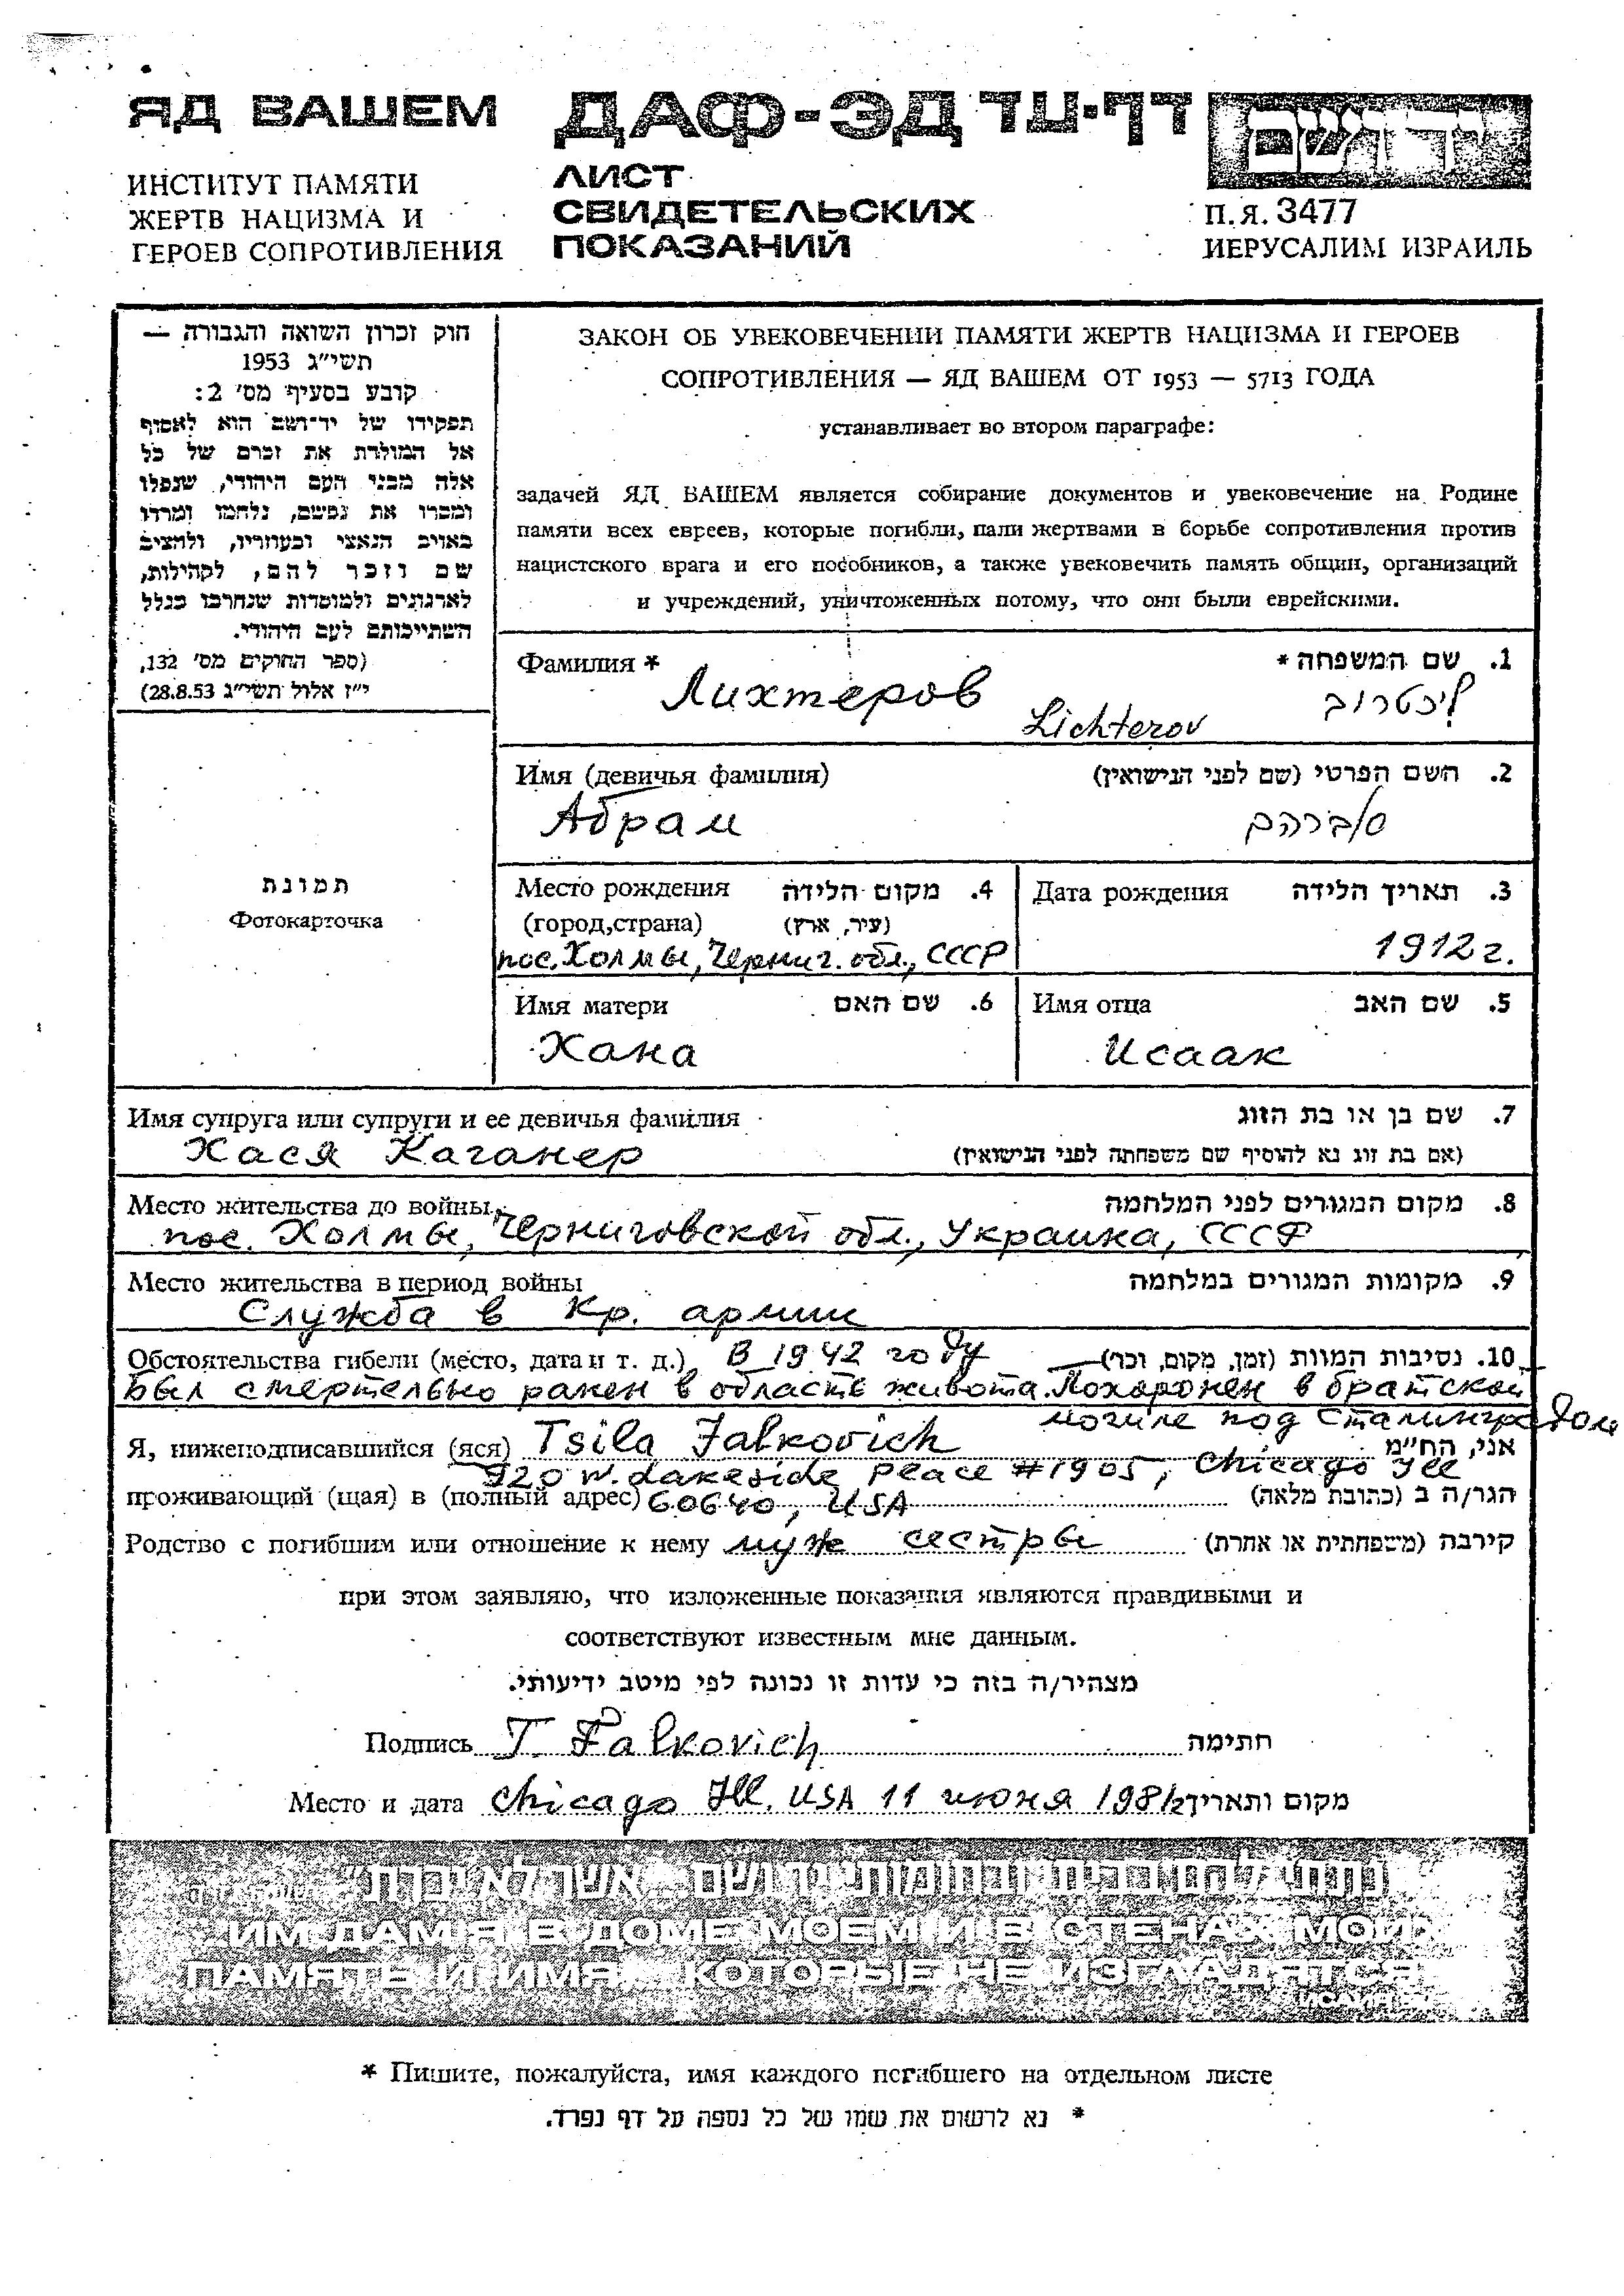 ЯД ВАШЕМ
ИНСТИТУТ ПАМЯТИ
ЖЕРТВ НАЦИЗМА И
ГЕРОЕВ СОПРОТИВЛЕНИЯ
ДАФ-ЭД דף-עד
ЛИСТ
СВИДЕТЕЛЬСКИХ
ПОКАЗАНИЙ
יד ושם
П.Я. 3477
ИЕРУСАЛИМ ИЗРАИЛЬ
חוק זכרון השואה והגבורה —
תשי״ג 1953
קובע בסעיף מס׳ 2:
תפקידו של יד־ושם הוא לאסוף
אל המולדת את זכרם של כל
אלה מבני העם היהודי, שנפלו
ומסרו את נפשם, נלחמו ומרדו
באויב הנאצי ובעוזריו, ולהציב
שם וזכר להם, לקהילות,
לארגונים ולמוסדות שנחרבו בגלל
השתייכותם לעם היהודי.
(ספר החוקים מס׳ 132,
י״ז אלול תשי״ג 28.8.53)
ЗАКОН ОБ УВЕКОВЕЧЕНИИ ПАМЯТИ ЖЕРТВ НАЦИЗМА И ГЕРОЕВ
СОПРОТИВЛЕНИЯ — ЯД ВАШЕМ ОТ 1953 — 5713 ГОДА
устанавливает во втором параграфе:
задачей ЯД ВАШЕМ является собирание документов и увековечение на Родине
памяти всех евреев, которые погибли, пали жертвами в борьбе сопротивления против
нацистского врага и его пособников, а также увековечить память общин, организаций
и учреждений, уничтоженных потому, что они были еврейскими.
Фамилия * 1. שם המשפחה *
Лихтеров Lichterov ליכטרוב
Имя (девичья фамилия) 2. השם הפרטי (שם לפני הנישואין)
Абрам אברהם
Место рождения 4. מקום הלידה
(город,страна) (עיר, ארץ)
пос. Холмы, Черниг. обл., СССР
Дата рождения 3. תאריך הלידה
1912 г.
Имя матери 6. שם האם
Хана
Имя отца 5. שם האב
Исаак
תמונת
Фотокарточка
Имя супруга или супруги и ее девичья фамилия 7. שם בן או בת הזוג
Хася Каганер (אם בת זוג נא להוסיף שם משפחתה לפני הנישואין)
Место жительства до войны 8. מקום המגורים לפני המלחמה
пос. Холмы, Черниговской обл., Украина, СССР
Место жительства в период войны 9. מקומות המגורים במלחמה
Служба в Кр. армии
Обстоятельства гибели (место, дата и т. д.) В 1942 году 10. נסיבות המוות (זמן, מקום, וכו׳)
был смертельно ранен в область живота. Похоронен в братской
могиле под Сталинградом
Я, нижеподписавшийся (яся) Tsila Falkovich אני, הח״מ
920 W. Lakeside Peace #1905, Chicago Ill
проживающий (щая) в (полный адрес) 60640, USA הגר/ה ב (כתובת מלאה)
Родство с погибшим или отношение к нему муж сестры קירבה (משפחתית או אחרת)
при этом заявляю, что изложенные показания являются правдивыми и
соответствуют известным мне данным.
מצהיר/ה בזה כי עדות זו נכונה לפי מיטב ידיעותי.
Подпись T. Falkovich חתימה
Место и дата Chicago Ill. USA 11 июня 1981г. מקום ותאריך
ונתתי להם בביתי ובחומותי יד ושם... אשר לא יכרת״
ИМ ДАМ Я В ДОМЕ МОЕМ И В СТЕНАХ МОИХ
ПАМЯТЬ И ИМЯ... КОТОРЫЕ НЕ ИЗГЛАДЯТСЯ
* Пишите, пожалуйста, имя каждого погибшего на отдельном листе
* נא לרשום את שמו של כל נספה על דף נפרד.